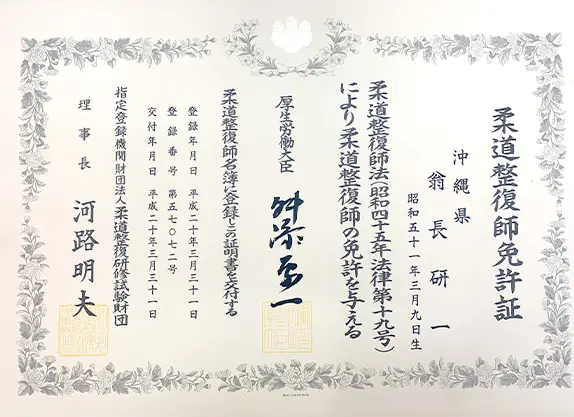 柔道整復師免許証
沖縄県
翁長研一
昭和五十一年三月九日生
柔道整復師法（昭和四十五年法律第十九号）
により柔道整復師の免許を与える
厚生労働大臣
舛添要一
柔道整復師名簿に登録しこの証明書を交付する
登録年月日 平成二十年三月三十一日
登録番号 第五七〇七二号
交付年月日 平成二十年三月三十一日
指定登録機関財団法人柔道整復研修試験財団
理事長 河路明夫